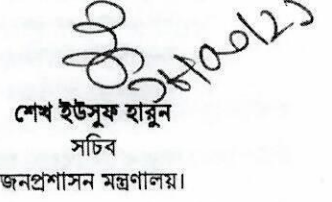 শেখ ইউসুফ হারুন
সচিব
জনপ্রশাসন মন্ত্রণালয়।